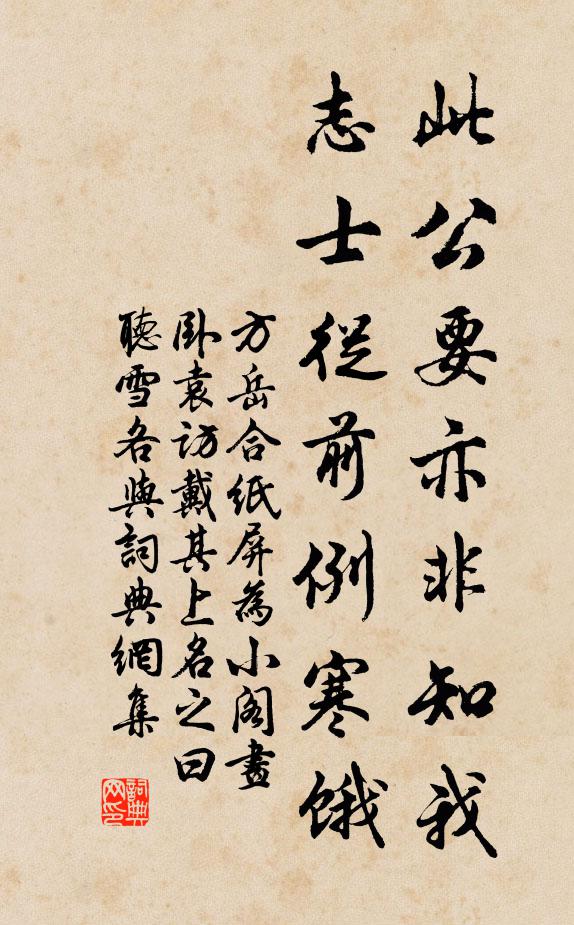 此公要亦非知我
志士從前例寒餓
方岳合紙屏為小閣畫
卧袁訪戴其上名之曰
聽雪各與詞典網集
詞典网印